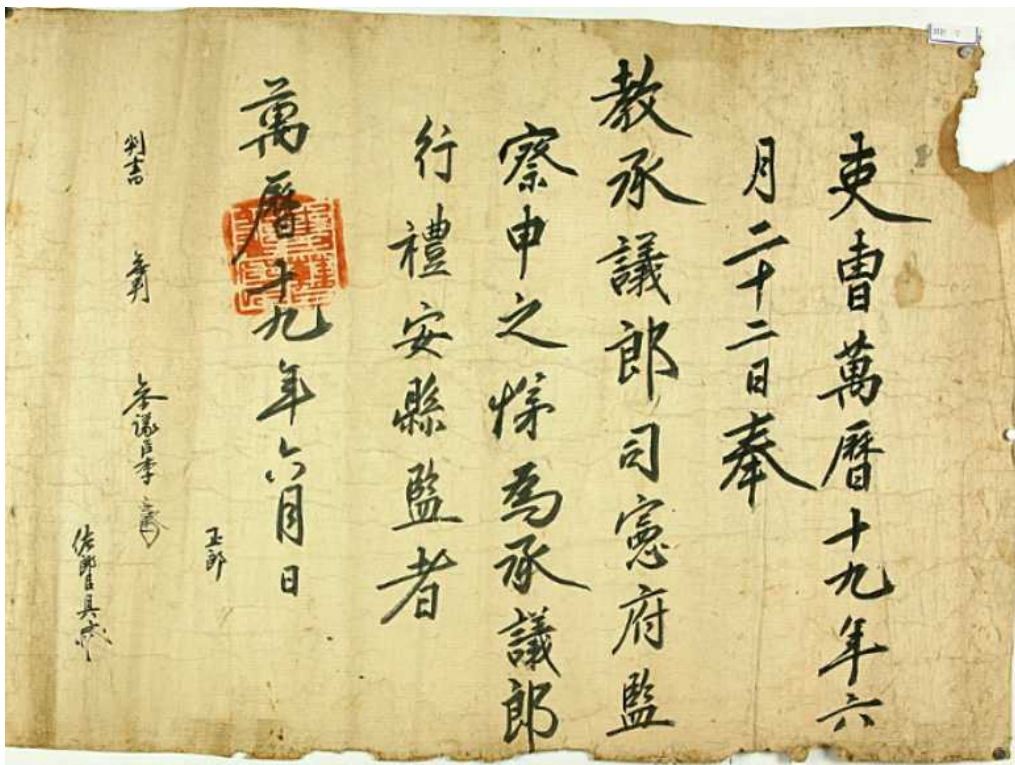 吏曹萬曆十九年六
月二十二日奉
教承議郎司憲府監
察申之悌爲承議郎
行禮安縣監者
萬曆十九年六月 日
正郎
判書 參判 參議臣李
佐郎臣具